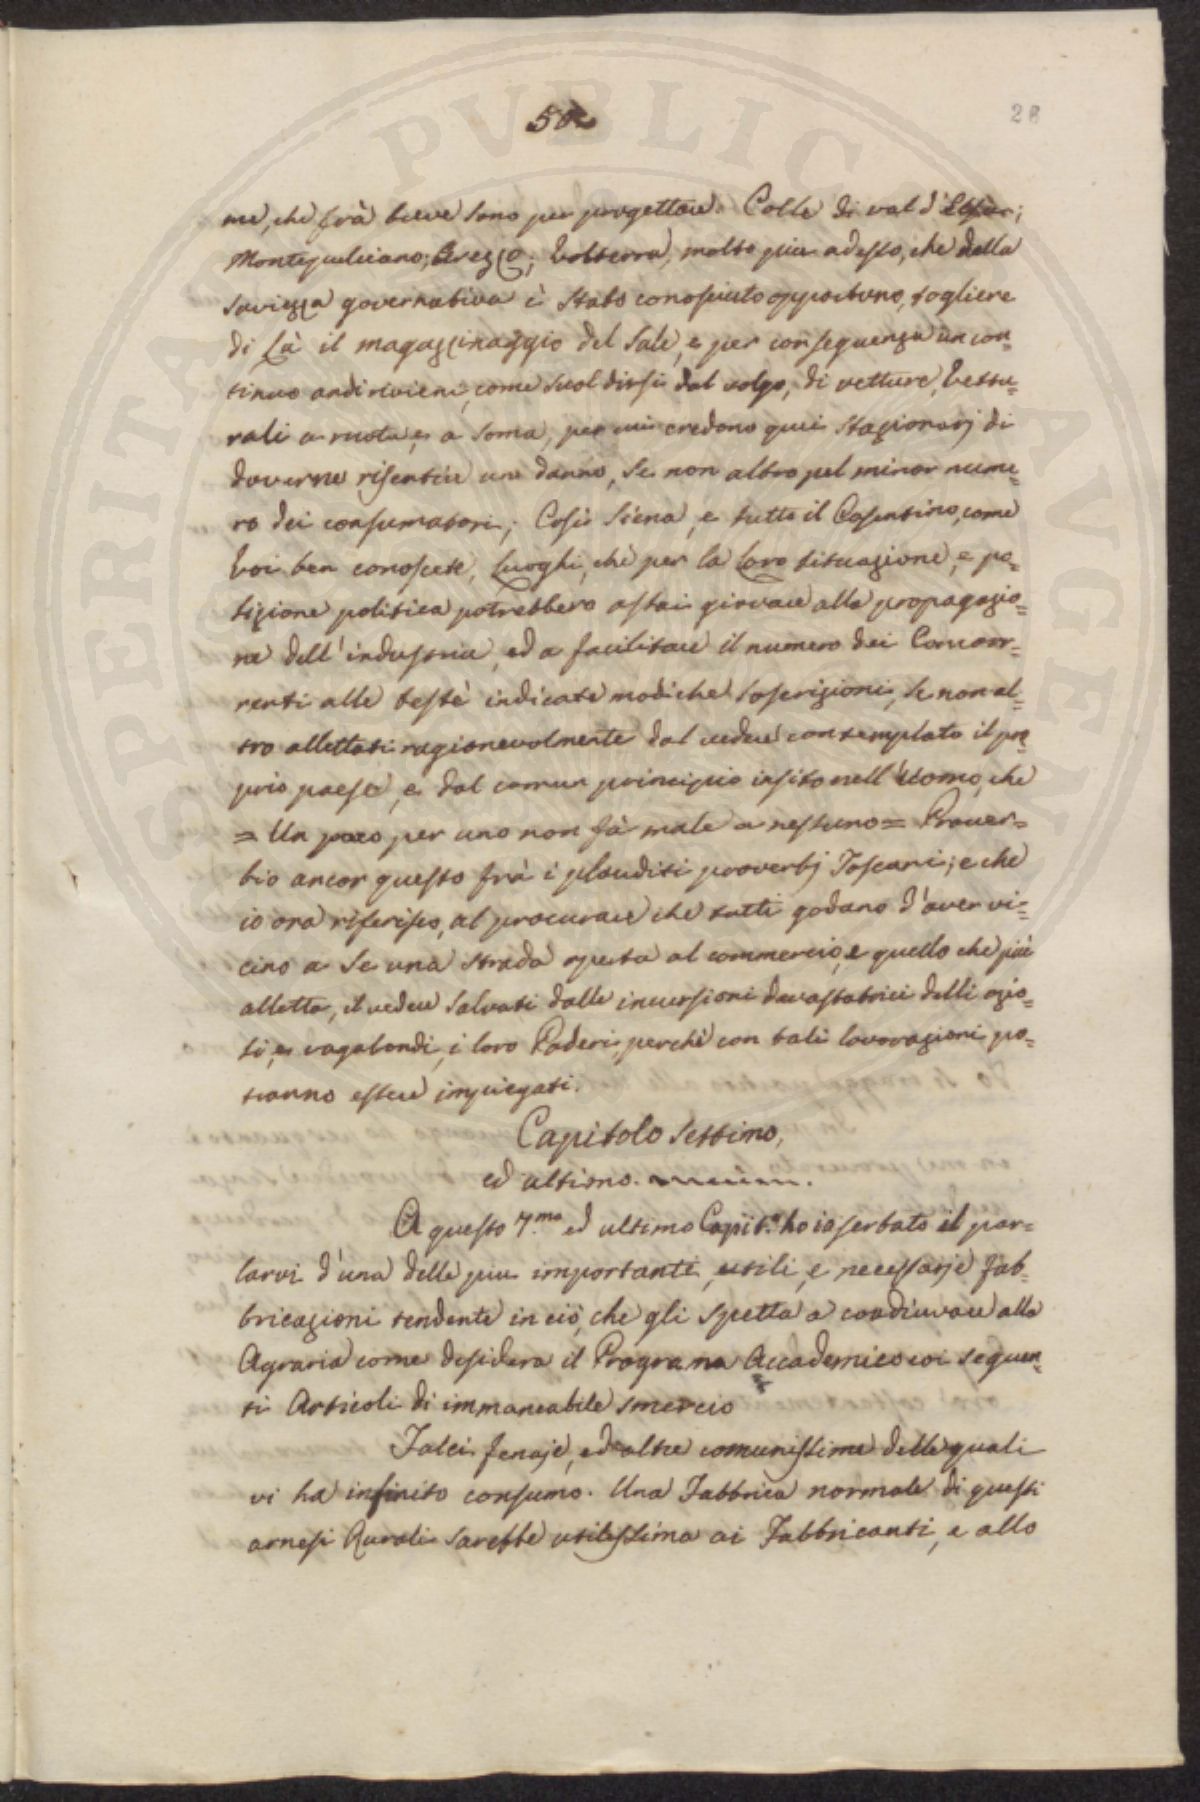 50
28
me, che frà breve sono per progettare. Colle di val d'Elsa;
Montepulciano; Arezzo; Volterra, molto piu adesso, che della
saviezza governativa è stato conosciuto opportuno, togliere
di Là il magazzinaggio del Sale, e per conseguenza un con=
tinuo andirivieni, come suol dirsi dal volgo, di vetture, Vettu=
rali a ruota, e a soma, per cui credono quei stazionarj di
doverne risentire un danno, se non altro pel minor nume=
ro dei consumatori; Così Siena, e tutto il Casentino, come
Voi ben conoscete, Luoghi, che per la Loro situazione, e po=
sizione politica potrebbero assai giovare alla propagazio=
ne dell'industria, ed a facilitare il numero dei Concor=
renti alle testè indicate modiche soscrizioni, se non al=
tro allettati ragionevolmente dal vedere contemplato il pro
prio paese, e dal comun principio insito nell'Uomo, che
= Un poco per uno non fà male a nessuno = Prover=
bio ancor questo frà i plauditi proverbj Toscani; e che
io ora riferisco, al procurare che tutti godano d'aver vi=
cino a se una strada aperta al commercio, e quello che più
alletta, il vedere salvati dalle incursioni devastatrici delli ozio=
si, e vagabondi, i loro Poderi, perchè con tali lavorazioni po=
tranno essere impiegati.
Capitolo Settimo,
ed ultimo.
A questo 7.mo ed ultimo Capit.o ho io serbato il par=
larvi d'una delle piu importanti, utili, e necessarje fab=
bricazioni tendente in ciò, che gli spetta a coadiuvare alla
Agraria come desidera il Programa Accademico coi seguen=
ti Articoli di immancabile smercio
Falci fenaje, ed altre comunissime delle quali
vi ha infinito consumo. Una Fabbrica normale di questi
arnesi Rurali sarebbe utilissima ai Fabbricanti, e allo
SPERITAS PVBLICA AVGEN